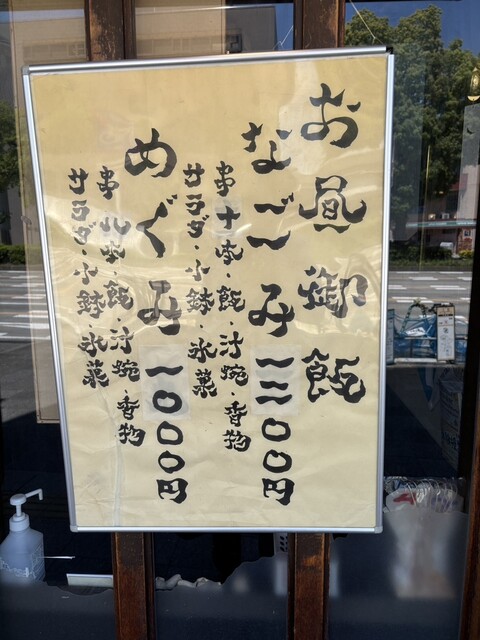 お昼御飯
なごみ一三〇〇円
串十本・飯・汁椀・香物
サラダ・小鉢・氷菓
めぐみ一〇〇〇円
串八本・飯・汁椀・香物
サラダ・小鉢・氷菓